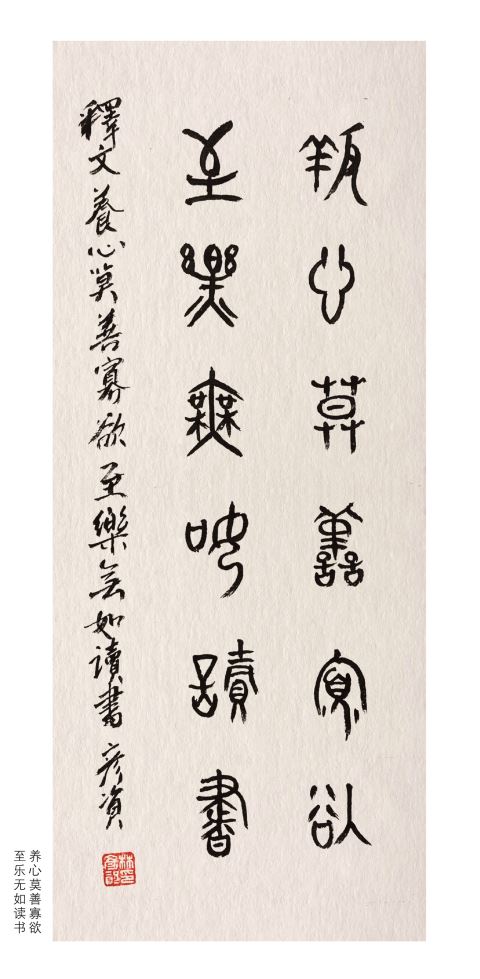 養心莫善寡欲
至樂無如讀書
釋文養心莫善寡欲至樂無如讀書彦資
养心莫善寡欲
至乐无如读书